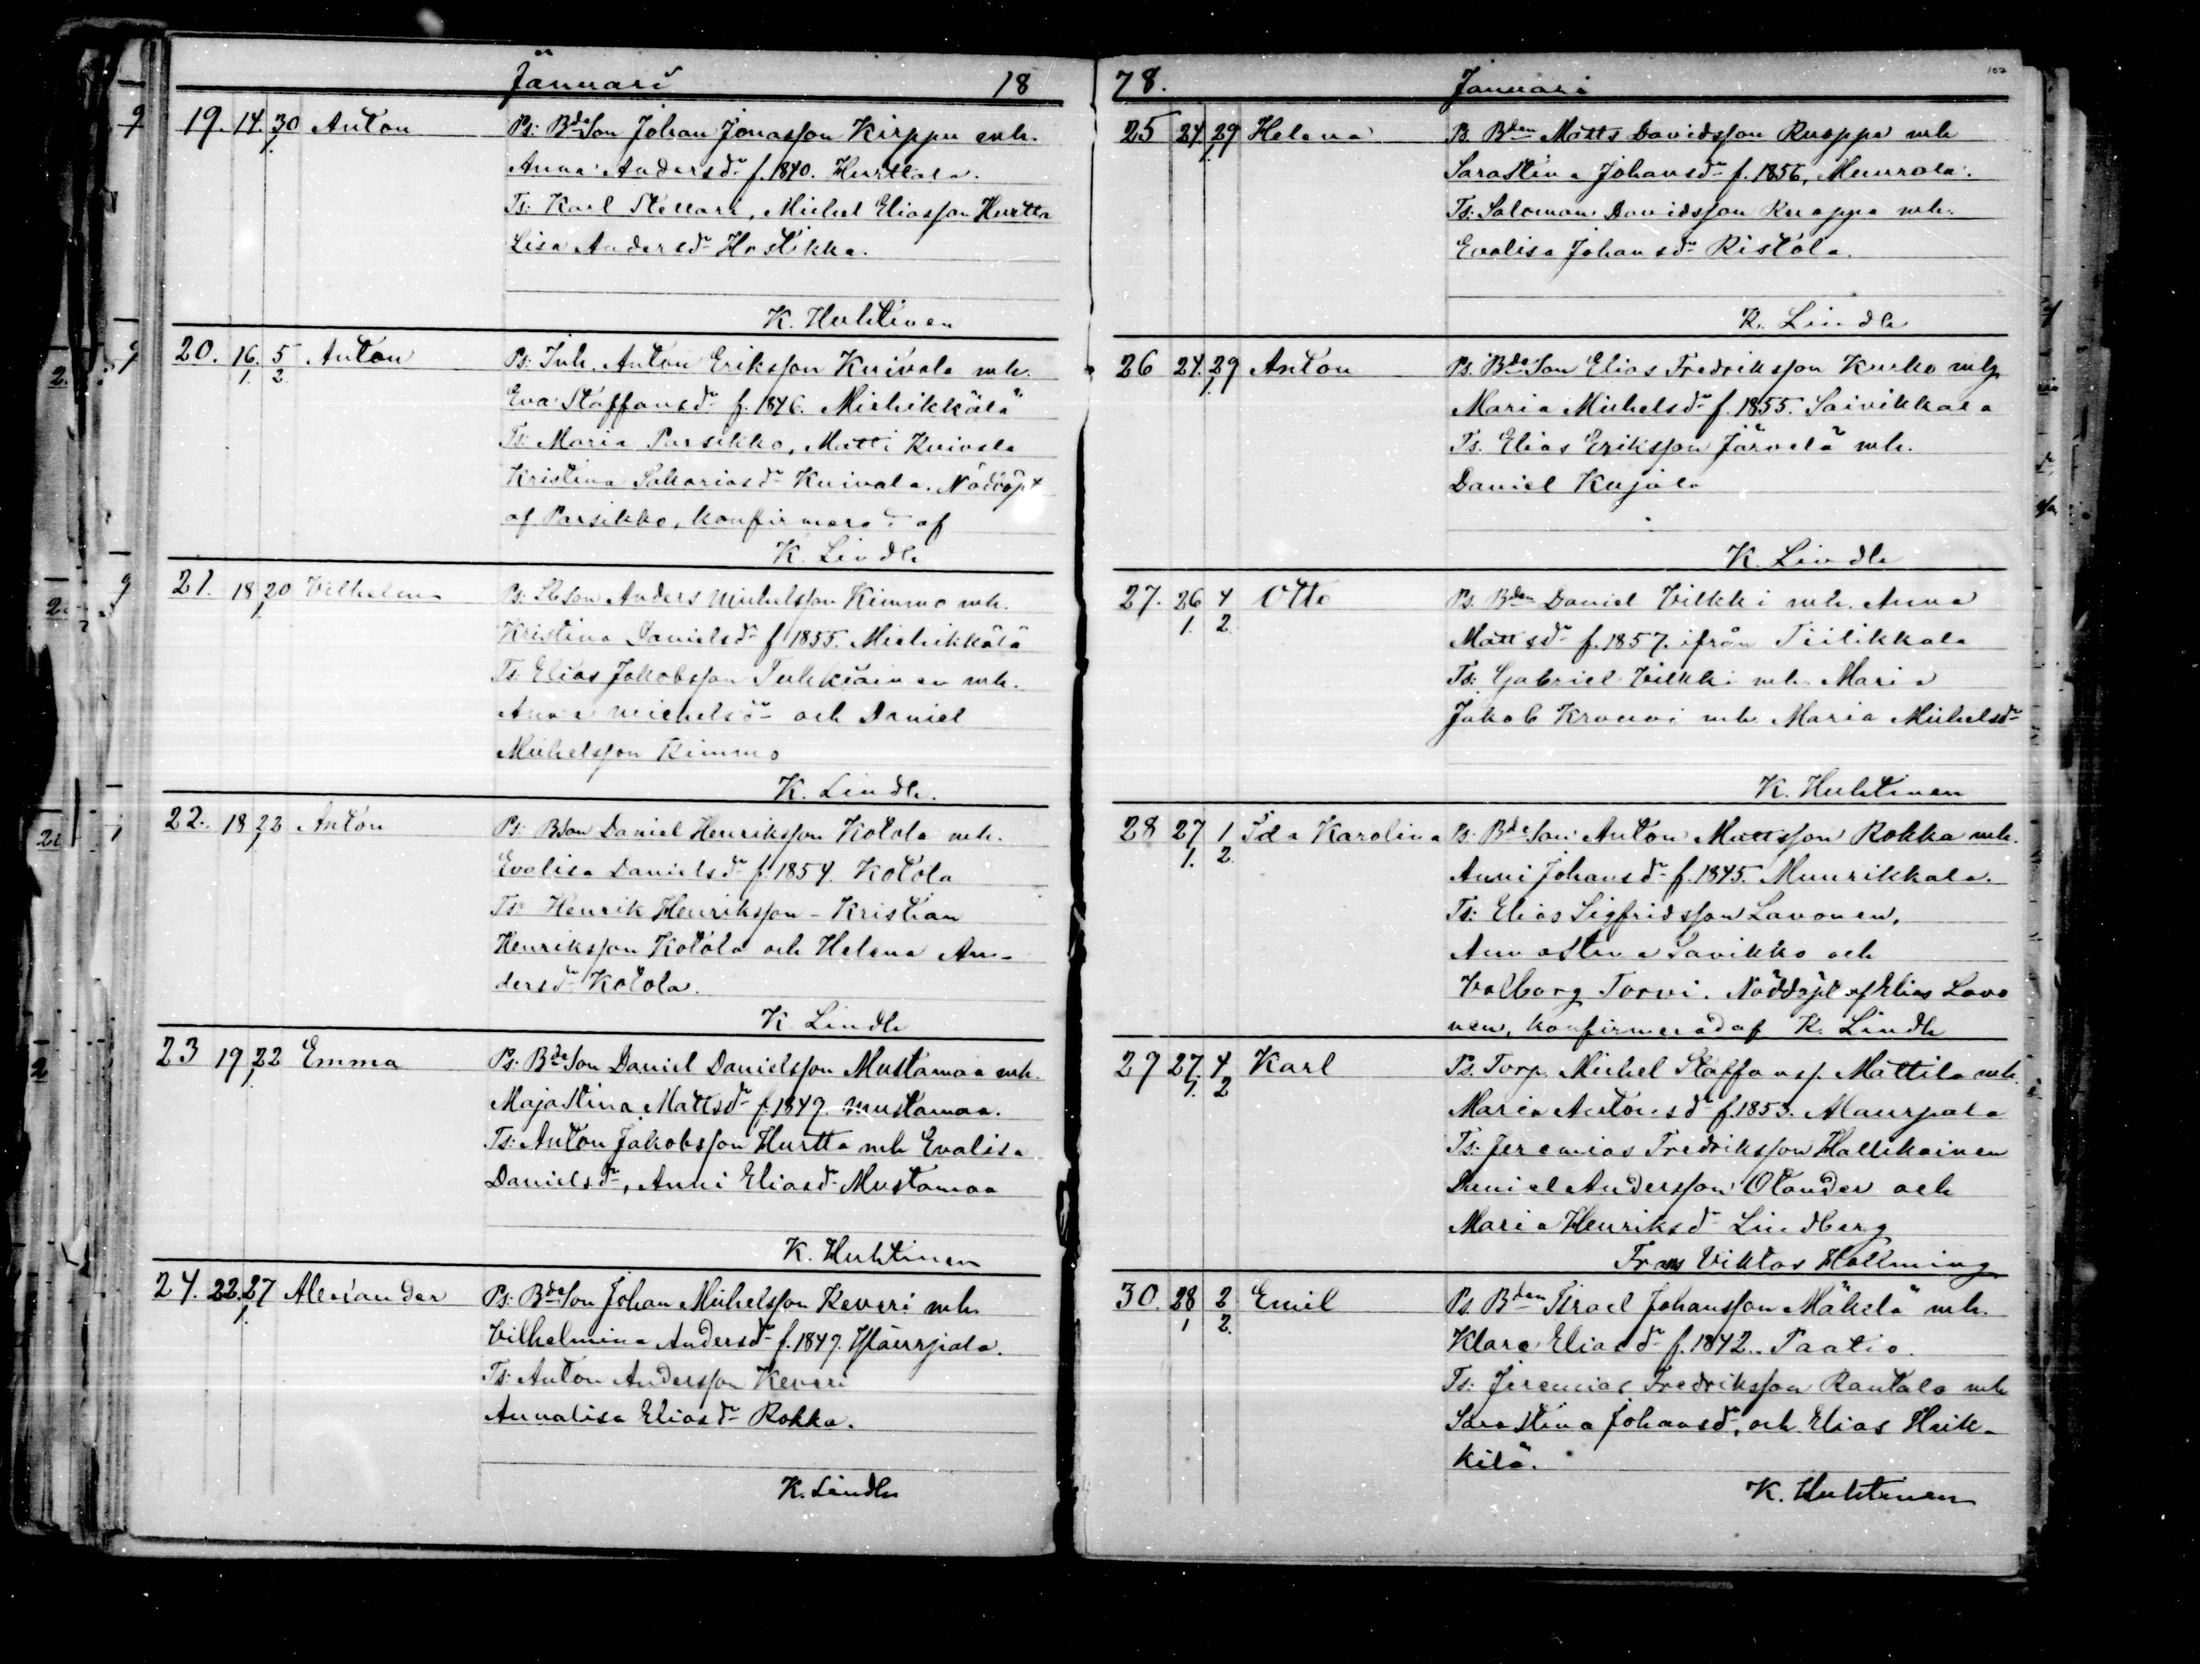 Januari 18
19. 14. 30 Anton Ps: Bdeson Johan Jonasson Kirppu mh.
1.
Anna Andersdr f. 1840. Hurttala.
Ts: Karl Stellari, Michel Eliasson Hurtta
Lisa Andersdr Hostikka.
K. Huhtinen
20. 16. 5 Anton Ps: Inh. Anton Eriksson Kuivala mh.
1. 2.
Eva Staffansdr f. 1846. Miehikkälä
Ts: Maria Parsikko, Matti Kuivala
Kristina Sakariasdr Kuivala. Nöddöpt
af Parsikko, konfirmerad af
K. Lindh
21. 18 20 Vilhelm Ps: Anders Michelsson Kimmo mh.
1.
Kristina Danielsdr f 1855. Miehikkälä
Ts: Elias Jakobsson Tuhkiainen mh.
Anna Michelsdr och Daniel
Michelsson Kimmo
K. Lindh.
22. 18 22 Anton Ps: Bson Daniel Henriksson Kotola mh.
1
Evalisa Danielsdr f 1854. Kotola
Ts: Henrik Henriksson - Kristian
Henriksson Kotola och Helena An-
dersdr Kotola.
K Lindh
23 19 22 Emma Ps: Bdeson Daniel Danielsson Mustamaa mh.
1.
Maja Stina Mattsdr f. 1849. Mustamaa.
Ts: Anton Jakobsson Hurtta mh Evalisa
Danielsdr, Anni Eliasdr Mustamaa
K. Huhtinen
24. 22. 27 Alexander Ps: Bdeson Johan Michelsson Keveri mh.
1.
Vilhelmina Andersdr f. 1849.
Ts: Anton Andersson Keveri
Annalisa Eliasdr Rokka.
K. Lindh
78. Januari 102
25 24. 29 Helena Ps. Bden Matts Davidsson Ruoppa mh
1.
Sara Stina Johansdr f. 1856, Muurola.
Ts: Salomon Davidsson Ruoppa mh.
Evalisa Johansdr Ristola.
K. Lindh
26 24. 29 Anton Ps. Bdeson Elias Fredriksson Kurko mh
1.
Maria Michelsdr f. 1855. Saivikkala
Ts. Elias Eriksson Järvelä mh.
Daniel Kujala
K. Lindh
27. 26 4 Otto Ps. Bden Daniel Vilkki mh. Anna
1. 2.
Mattsdr f. 1857. ifrån Tiilikkala
Ts: Gabriel Vilkki mh. Maria
Jakob Krouvi mh Maria Michelsdr
K. Huhtinen
28 27 1 Ida Karolina Ps. Bdeson Anton Mattsson Rokka mh.
1. 2.
Anni Johansdr f. 1845. Muurikkala.
Ts: Elias Sigfridsson Lavonen,
Anna Stina Savikko och
Valborg Torvi. Nöddöpt af Elias Lavo
nen, konfirmerad af K. Lindh
29 27. 4 Karl Ps. Torp. Michel Staffanss. Mattila mh.
1. 2
Maria Antonsdr f. 1853. Alaurpala
Ts: Jeremias Fredriksson Hallikainen
Daniel Andersson Olander och
Maria Henriksdr Lindberg
Frans Viktor Hollming
30. 28 2 Emil Ps. Bden Israel Johansson Mäkelä mh.
1 2.
Klara Eliasdr f. 1842. Paatio.
Ts: Jeremias Fredriksson Rantala mh
Sara Stina Johansdr, och Elias Heik-
kilä.
K. Huhtinen